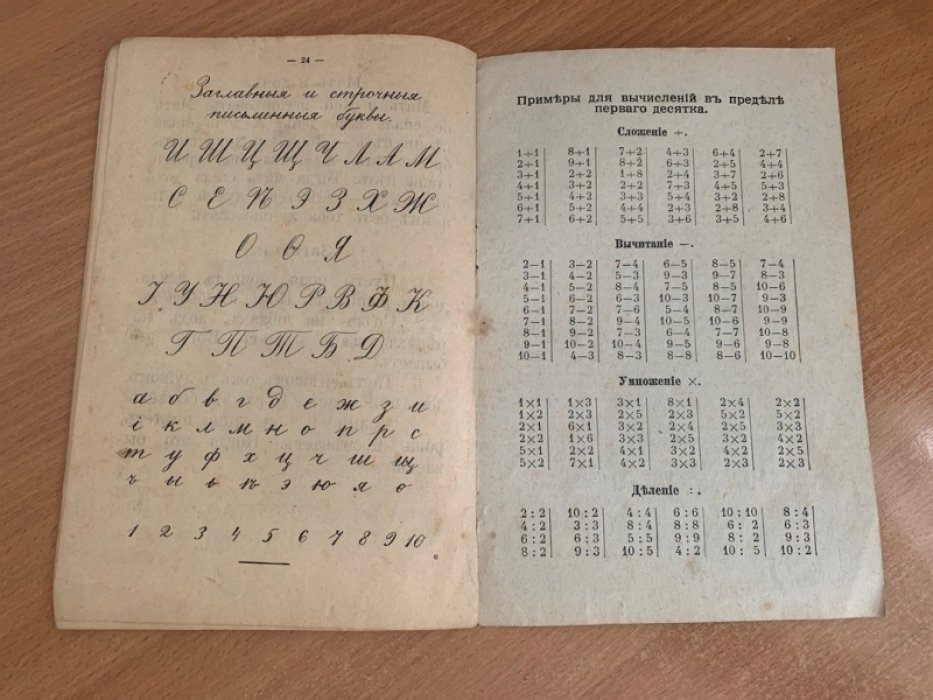 — 24 —
Заглавныя и строчныя
письменныя буквы.
И Ш Ц Щ Ч Л А М
С Е Ѣ Э З Х Ж
О Ѳ Я
І У Н Ю Р В Ф К
Г П Т Б Д
а б в г д е ж з и
і к л м н о п р с
т у ф х ц ч ш щ
ъ ы ь ѣ э ю я ѳ
1 2 3 4 5 6 7 8 9 10
Примѣры для вычисленій въ предѣлѣ
перваго десятка.
Сложеніе +.
1+1 8+1 7+2 4+3 6+4 2+7
2+1 9+1 8+2 6+3 2+5 4+4
3+1 2+2 1+8 2+4 3+7 2+6
4+1 3+2 2+2 7+3 4+5 5+3
5+1 4+2 3+3 5+4 3+2 2+8
6+1 5+2 4+4 2+3 2+8 3+4
7+1 6+2 5+5 3+6 3+5 4+6
Вычитаніе —.
2—1 3—2 7—4 6—5 8—5 7—4
3—1 4—2 5—3 9—3 9—7 8—3
4—1 5—2 8—4 7—5 8—5 10—6
5—1 6—2 6—3 10—3 10—7 9—3
6—1 7—2 7—6 5—4 8—7 10—9
7—1 8—2 9—4 10—5 10—6 9—9
8—1 9—2 7—3 6—4 7—7 10—8
9—1 10—2 10—4 9—5 9—6 9—8
10—1 4—3 8—3 8—8 8—6 10—10
Умноженіе ×.
1×1 1×3 3×1 8×1 2×4 2×2
1×2 2×3 2×5 4×2 5×2 5×2
2×1 6×1 3×2 2×4 2×5 3×3
2×2 1×6 3×3 2×5 3×2 4×2
5×1 2×2 4×1 3×2 4×2 2×5
5×2 7×1 4×2 3×3 2×3 2×3
Дѣленіе :.
2 : 2 10 : 2 4 : 4 6 : 6 10 : 10 8 : 4
4 : 2 3 : 3 8 : 4 8 : 8 6 : 2 6 : 3
6 : 2 6 : 3 5 : 5 9 : 9 8 : 2 9 : 3
8 : 2 9 : 3 10 : 5 4 : 2 10 : 5 10 : 2